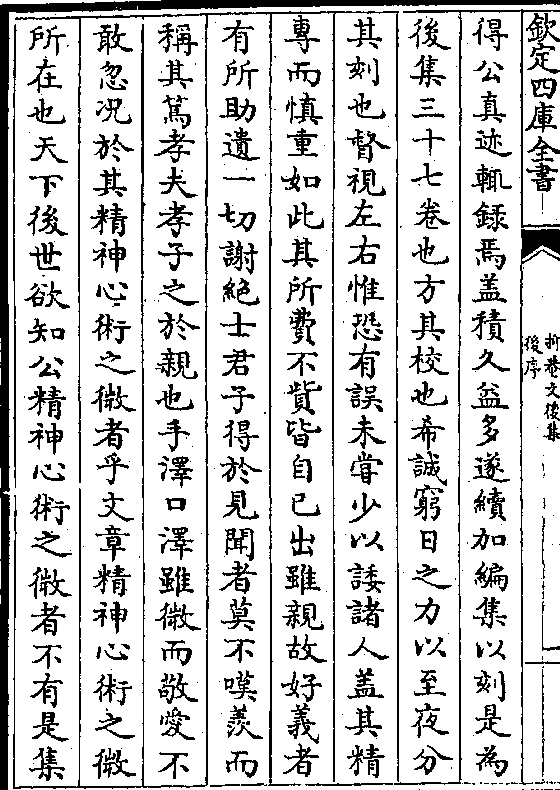 欽定四庫全書
抑菴文後集
後序
得公真迹輒録焉盖積久益多遂續加編集以刻是為
後集三十七卷也方其校也希誠窮日之力以至夜分
其刻也督視左右惟恐有誤未甞少以諉諸人盖其精
專而慎重如此其所費不貲皆自已出雖親故好義者
有所助遺一切謝絶士君子得於見聞者莫不嘆羨而
稱其篤孝夫孝子之於親也手澤口澤雖微而敬愛不
敢忽况於其精神心術之微者乎文章精神心術之微
所在也天下後世欲知公精神心術之微者不有是集